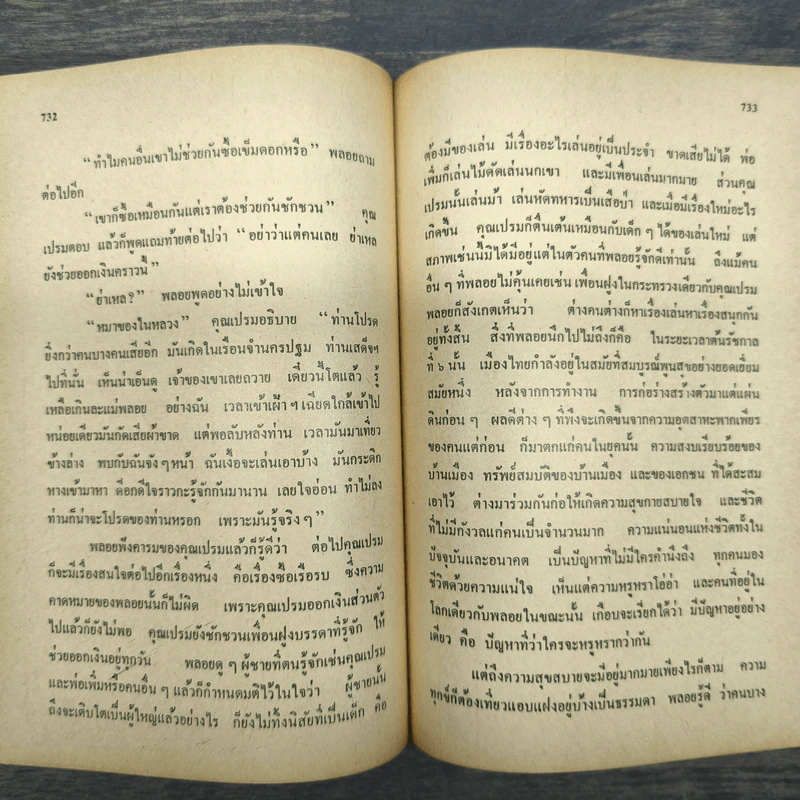 732
“ทำไมคนอื่นเขาไม่ช่วยกันซื้อเข็มดอกหรือ” พลอยถาม
ต่อไปอีก
“เขาก็ซื้อเหมือนกันแต่เราต้องช่วยกันชักชวน” คุณ
เปรมตอบ แล้วก็พูดแถมท้ายต่อไปว่า “อย่าว่าแต่คนเลย ย่าเหล
ยังช่วยออกเงินคราวนี้”
“ย่าเหล?” พลอยพูดอย่างไม่เข้าใจ
“หมาของในหลวง” คุณเปรมอธิบาย “ท่านโปรด
ยิ่งกว่าคนบางคนเสียอีก มันเกิดในเรือนจำนครปฐม ท่านเสด็จฯ
ไปที่นั่น เห็นน่าเอ็นดู เจ้าของเขาเลยถวาย เดี๋ยวนี้โตแล้ว รู้
เหลือเกินละแม่พลอย อย่างฉัน เวลาเข้าเฝ้าฯ เฉียดใกล้เข้าไป
หน่อยเดียวมันกัดเสียผ้าขาด แต่พอลับหลังท่าน เวลามันมาเที่ยว
ข้างล่าง พบกับฉันจังๆ หน้า ฉันเงื้อจะเล่นเอาบ้าง มันกระดิก
หางเข้ามาหา ดีอกดีใจราวกะรู้จักกันมานาน เลยใจอ่อน ทำไม่ลง
ท่านก็น่าจะโปรดของท่านหรอก เพราะมันรู้จริงๆ”
พลอยฟังคารมของคุณเปรมแล้วก็รู้ดีว่า ต่อไปคุณเปรม
ก็จะมีเรื่องสนใจต่อไปอีกเรื่องหนึ่ง คือเรื่องซื้อเรือรบ ซึ่งความ
คาดหมายของพลอยนั้นก็ไม่ผิด เพราะคุณเปรมออกเงินส่วนตัว
ไปแล้วก็ยังไม่พอ คุณเปรมยังชักชวนเพื่อนฝูงบรรดาที่รู้จัก ให้
ช่วยออกเงินอยู่ทุกวัน พลอยดูๆ ผู้ชายที่ตนรู้จักเช่นคุณเปรม
และพ่อเพิ่มหรือคนอื่นๆ แล้วก็กำหนดมติไว้ในใจว่า ผู้ชายนั้น
ถึงจะเติบโตเป็นผู้ใหญ่แล้วอย่างไร ก็ยังไม่ทิ้งนิสัยที่เป็นเด็ก คือ
733
ต้องมีของเล่น มีเรื่องอะไรเล่นอยู่เป็นประจำ ขาดเสียไม่ได้ พ่อ
เพิ่มก็เล่นไม้ดัดเล่นนกเขา และมีเพื่อนเล่นมากมาย ส่วนคุณ
เปรมนั้นเล่นม้า เล่นหัดทหารเป็นเสือป่า และเมื่อมีเรื่องใหม่อะไร
เกิดขึ้น คุณเปรมก็ตื่นเต้นเหมือนกับเด็กๆ ได้ของเล่นใหม่ แต่
สภาพเช่นนี้มิได้มีอยู่แต่ในตัวคนที่พลอยรู้จักดีเท่านั้น ถึงแม้คน
อื่นๆ ที่พลอยไม่คุ้นเคยเช่น เพื่อนฝูงในกระทรวงเดียวกับคุณเปรม
พลอยก็สังเกตเห็นว่า ต่างคนต่างก็หาเรื่องเล่นหาเรื่องสนุกกัน
อยู่ทั้งสิ้น สิ่งที่พลอยนึกไปไม่ถึงก็คือ ในระยะเวลาต้นรัชกาล
ที่ ๖ นั้น เมืองไทยกำลังอยู่ในสมัยที่สมบูรณ์พูนสุขอย่างยอดเยี่ยม
สมัยหนึ่ง หลังจากการทำงาน การก่อร่างสร้างตัวมาแต่แผ่น
ดินก่อนๆ ผลดีต่างๆ ที่พึงจะเกิดขึ้นจากความอุตสาหะพากเพียร
ของคนแต่ก่อน ก็มาตกแก่คนในยุคนั้น ความสงบเรียบร้อยของ
บ้านเมือง ทรัพย์สมบัติของบ้านเมือง และของเอกชน ที่ได้สะสม
เอาไว้ ต่างมาร่วมกันก่อให้เกิดความสุขกายสบายใจ และชีวิต
ที่ไม่มีกังวลแก่คนเป็นจำนวนมาก ความแน่นอนแห่งชีวิตทั้งใน
ปัจจุบันและอนาคต เป็นปัญหาที่ไม่มีใครคำนึงถึง ทุกคนมอง
ชีวิตด้วยความแน่ใจ เห็นแต่ความหรูหราโอ่อ่า และคนที่อยู่ใน
โลกเดียวกับพลอยในขณะนั้น เกือบจะเรียกได้ว่า มีปัญหาอยู่อย่าง
เดียว คือ ปัญหาที่ว่าใครจะหรูหรากว่ากัน
แต่ถึงความสุขสบายจะมีอยู่มากมายเพียงไรก็ตาม ความ
ทุกข์ก็ต้องเที่ยวแอบแฝงอยู่บ้างเป็นธรรมดา พลอยรู้ดี ว่าคนบาง